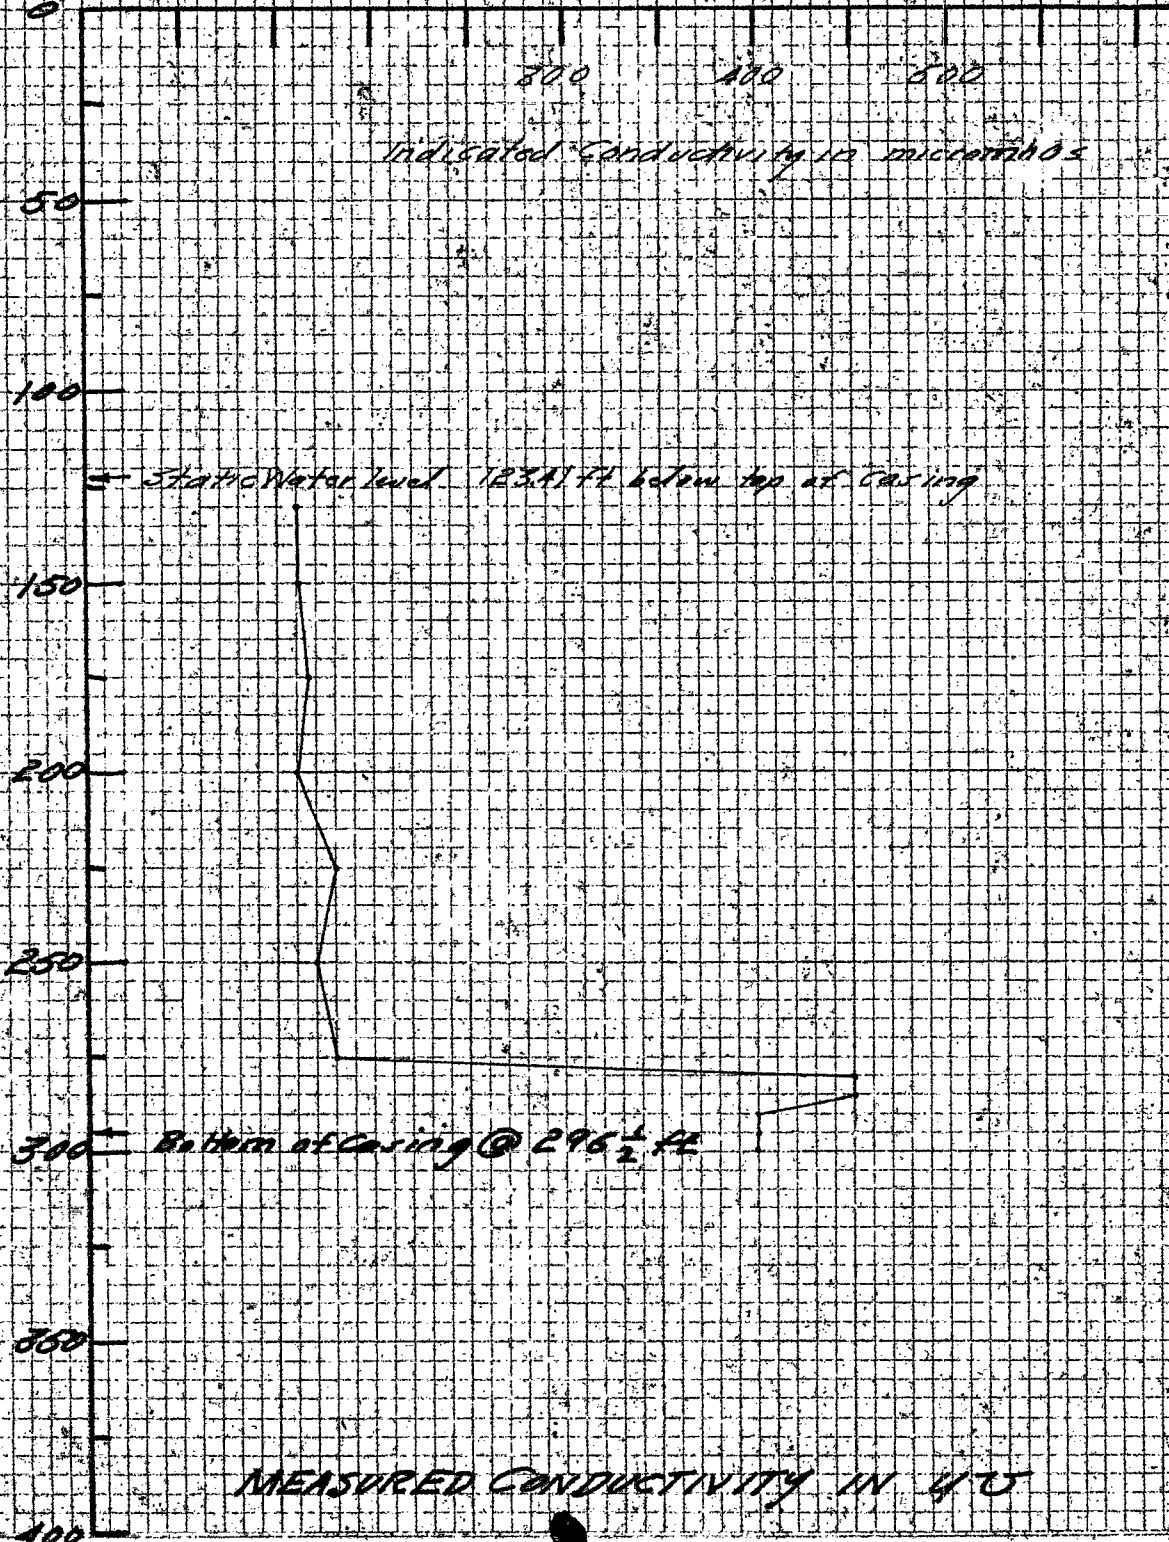 0
300 400 500
Indicated Conductivity in micromhos
50
100
Static Water level 123.41 ft below top of Casing
150
200
250
Bottom of Casing @ 296 1/2 ft
300
350
MEASURED CONDUCTIVITY IN μ℧
400